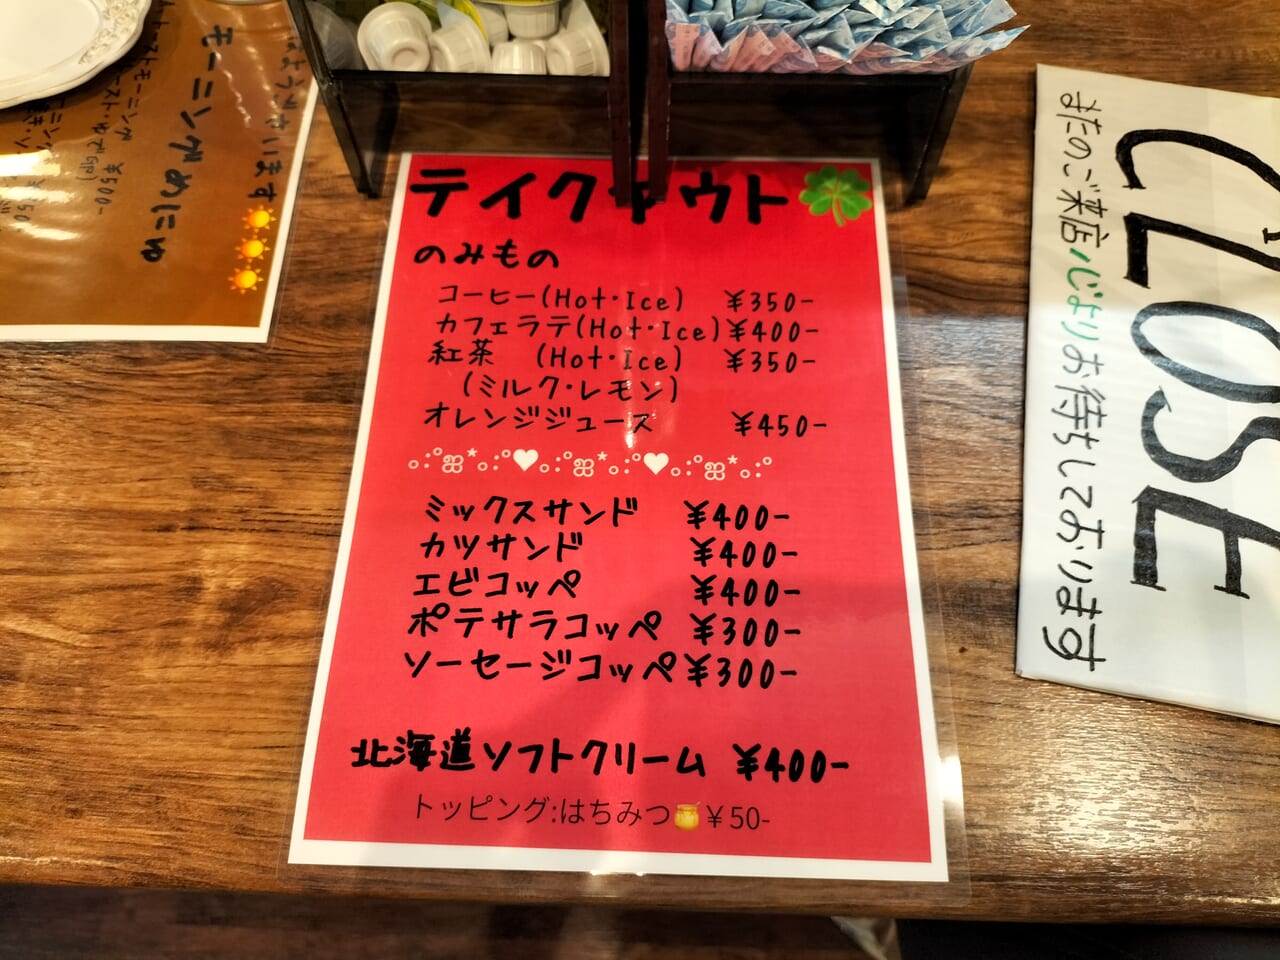 テイクアウト
のみもの
コーヒー(Hot・Ice) ¥350-
カフェラテ(Hot・Ice)¥400-
紅茶 (Hot・Ice) ¥350-
(ミルク・レモン)
オレンジジュース ¥450-
ミックスサンド ¥400-
カツサンド ¥400-
エビコッペ ¥400-
ポテサラコッペ ¥300-
ソーセージコッペ¥300-
北海道ソフトクリーム ¥400-
トッピング:はちみつ🍯¥50-
CLOSE
またのご来店心よりお待ちしております
モーニングめにゅ